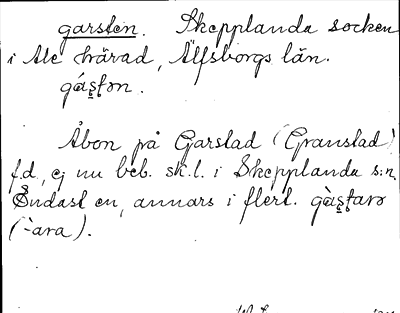 garstén. Skepplanda socken
i Ale härad, Älfsborgs län.
gás̭ṱən.
Åbon på Garstad (Granstad)
f.d., ej nu beb. sk.l. i Skepplanda s:n,
Endast en, annars i flert. gàs̭ṱarə
(-̀ara).